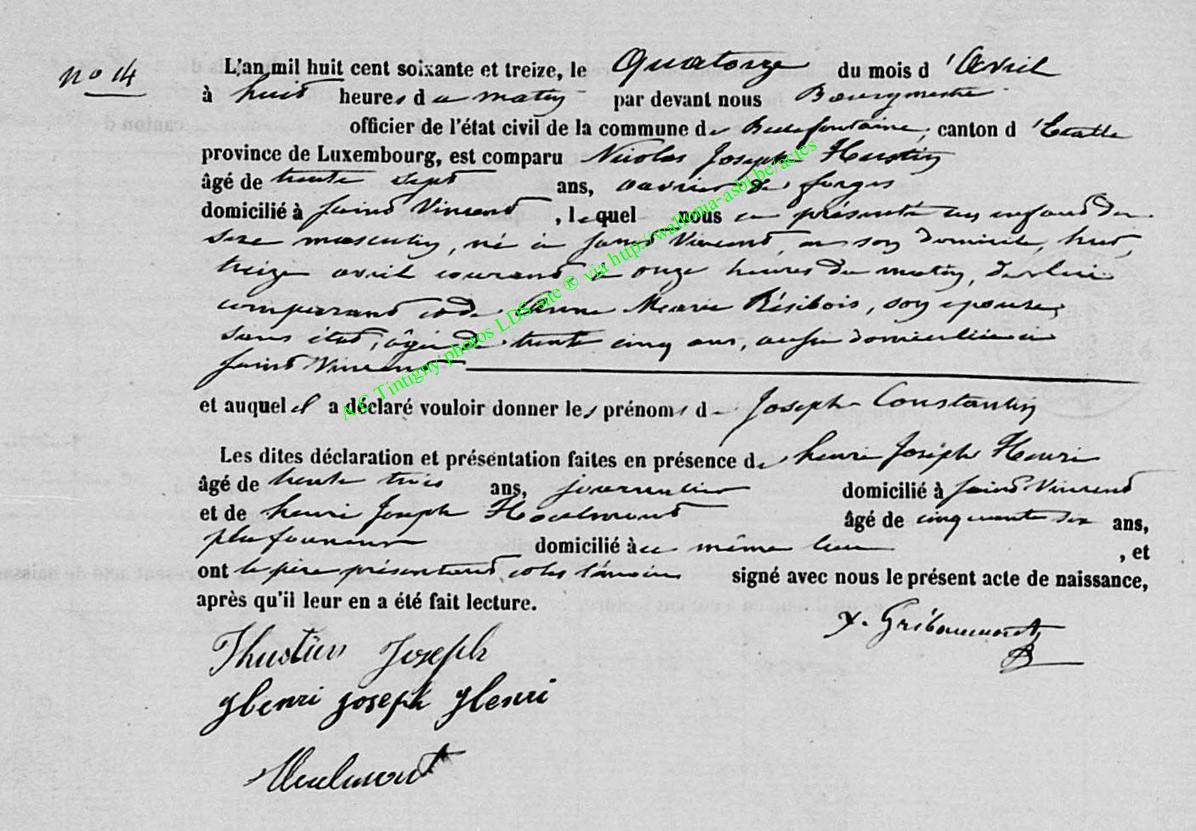 no 14
L'an mil huit cent soixante et treize, le Quatorze du mois d'Avril
à huit heures du matin par devant nous Bourgmestre
officier de l'état civil de la commune de Bellefontaine, canton d'Etalle
province de Luxembourg, est comparu Nicolas Joseph Hustin
âgé de trente sept ans, ouvrier de forges
domicilié à Saint Vincent, lequel nous a présenté un enfant du
sexe masculin, né à Saint Vincent, en son domicile,
treize avril courant à onze heures du matin, de lui
comparant et de Anne Marie Résibois, son épouse,
sans état, âgée de trente cinq ans, aussi domiciliée à
Saint Vincent
et auquel il a déclaré vouloir donner les prénoms de Joseph Constantin
Les dites déclaration et présentation faites en présence de henri Joseph Henri
âgé de trente trois ans, journalier domicilié à Saint Vincent
et de henri Joseph âgé de cinquante six ans,
plafonneur domicilié à ce même lieu, et
ont le père présentant et les témoins signé avec nous le présent acte de naissance,
après qu'il leur en a été fait lecture.
X. Gribaumont
Hustin Joseph
Henri Joseph Henri
A.C. Tintigny photos LDS site ® via http://wallonia-asbl.be/actes